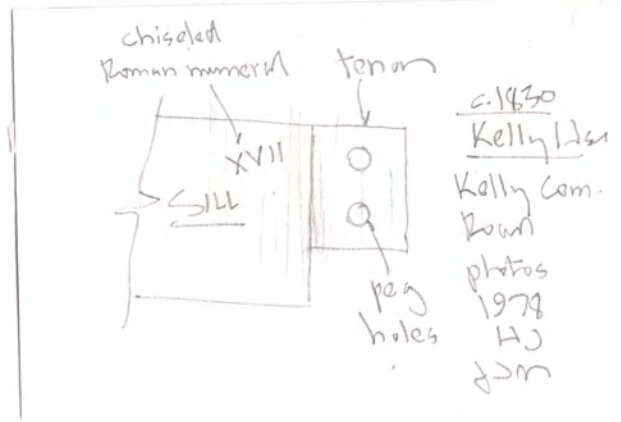 chiseled
Roman numeral
tenon
XVII
SILL
peg
holes
c.1830
Kelly Hse
Kelly Cem.
Road
photos
1978